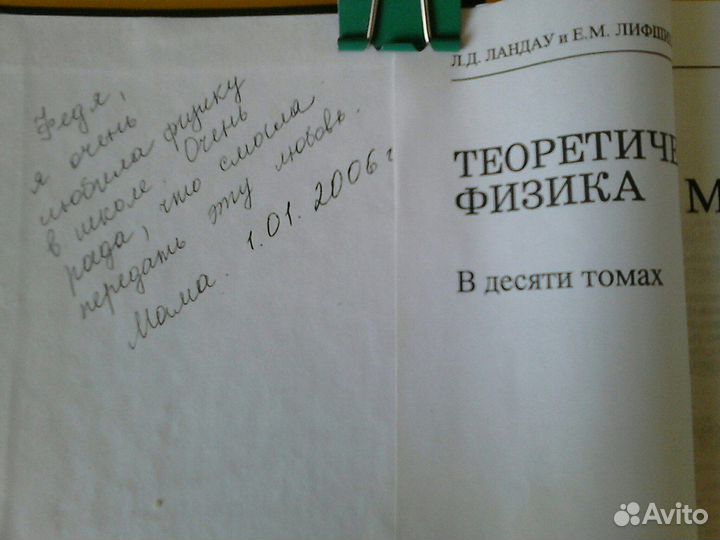 Федя,
я очень
любила физику
в школе. Очень
рада, что смогла
передать эту любовь.
Мама. 1.01.2006 г
Л.Д. ЛАНДАУ и Е.М. ЛИФШИ
ТЕОРЕТИЧЕ
ФИЗИКА
В десяти томах
М
Avito